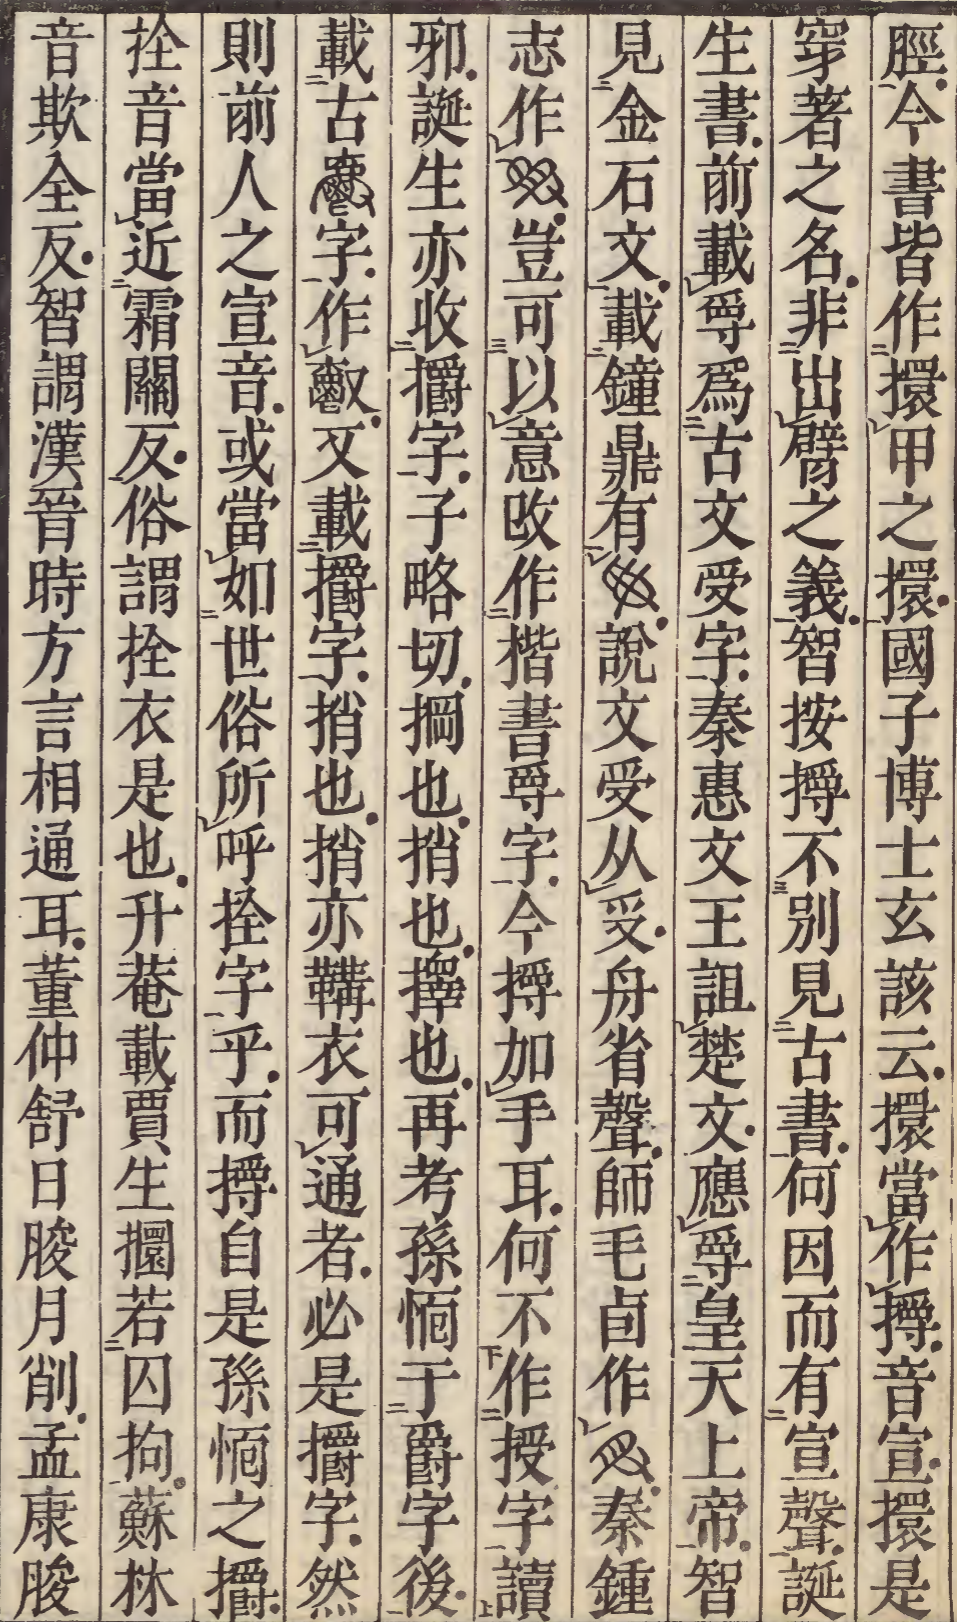 脛今書皆作擐甲之擐國子博士玄該云擐當作捋音宣擐是
穿著之名非出臂之義智按捋不別見古書何因而有宣聲誕
生書前載爲古文受字秦惠文王詛楚文應皇天上帝智
見金石文載鐘鼎有說文受从受舟省聲師毛卣作秦鍾
志作豈可以意改作楷書字今加手耳何不作授字讀
邪誕生亦收字子略切掆也捎也擇也再考孫愐于爵字後
載古字作又載字捎也捎亦韝衣可通者必是字然
則前人之宣音或當如世俗所呼拴字乎而自是孫愐之
拴音當近霜關反俗謂拴衣是也升菴載賈生若囚拘蘇林
音欺全反智謂漢晉時方言相通耳董仲舒日朘月削孟康朘